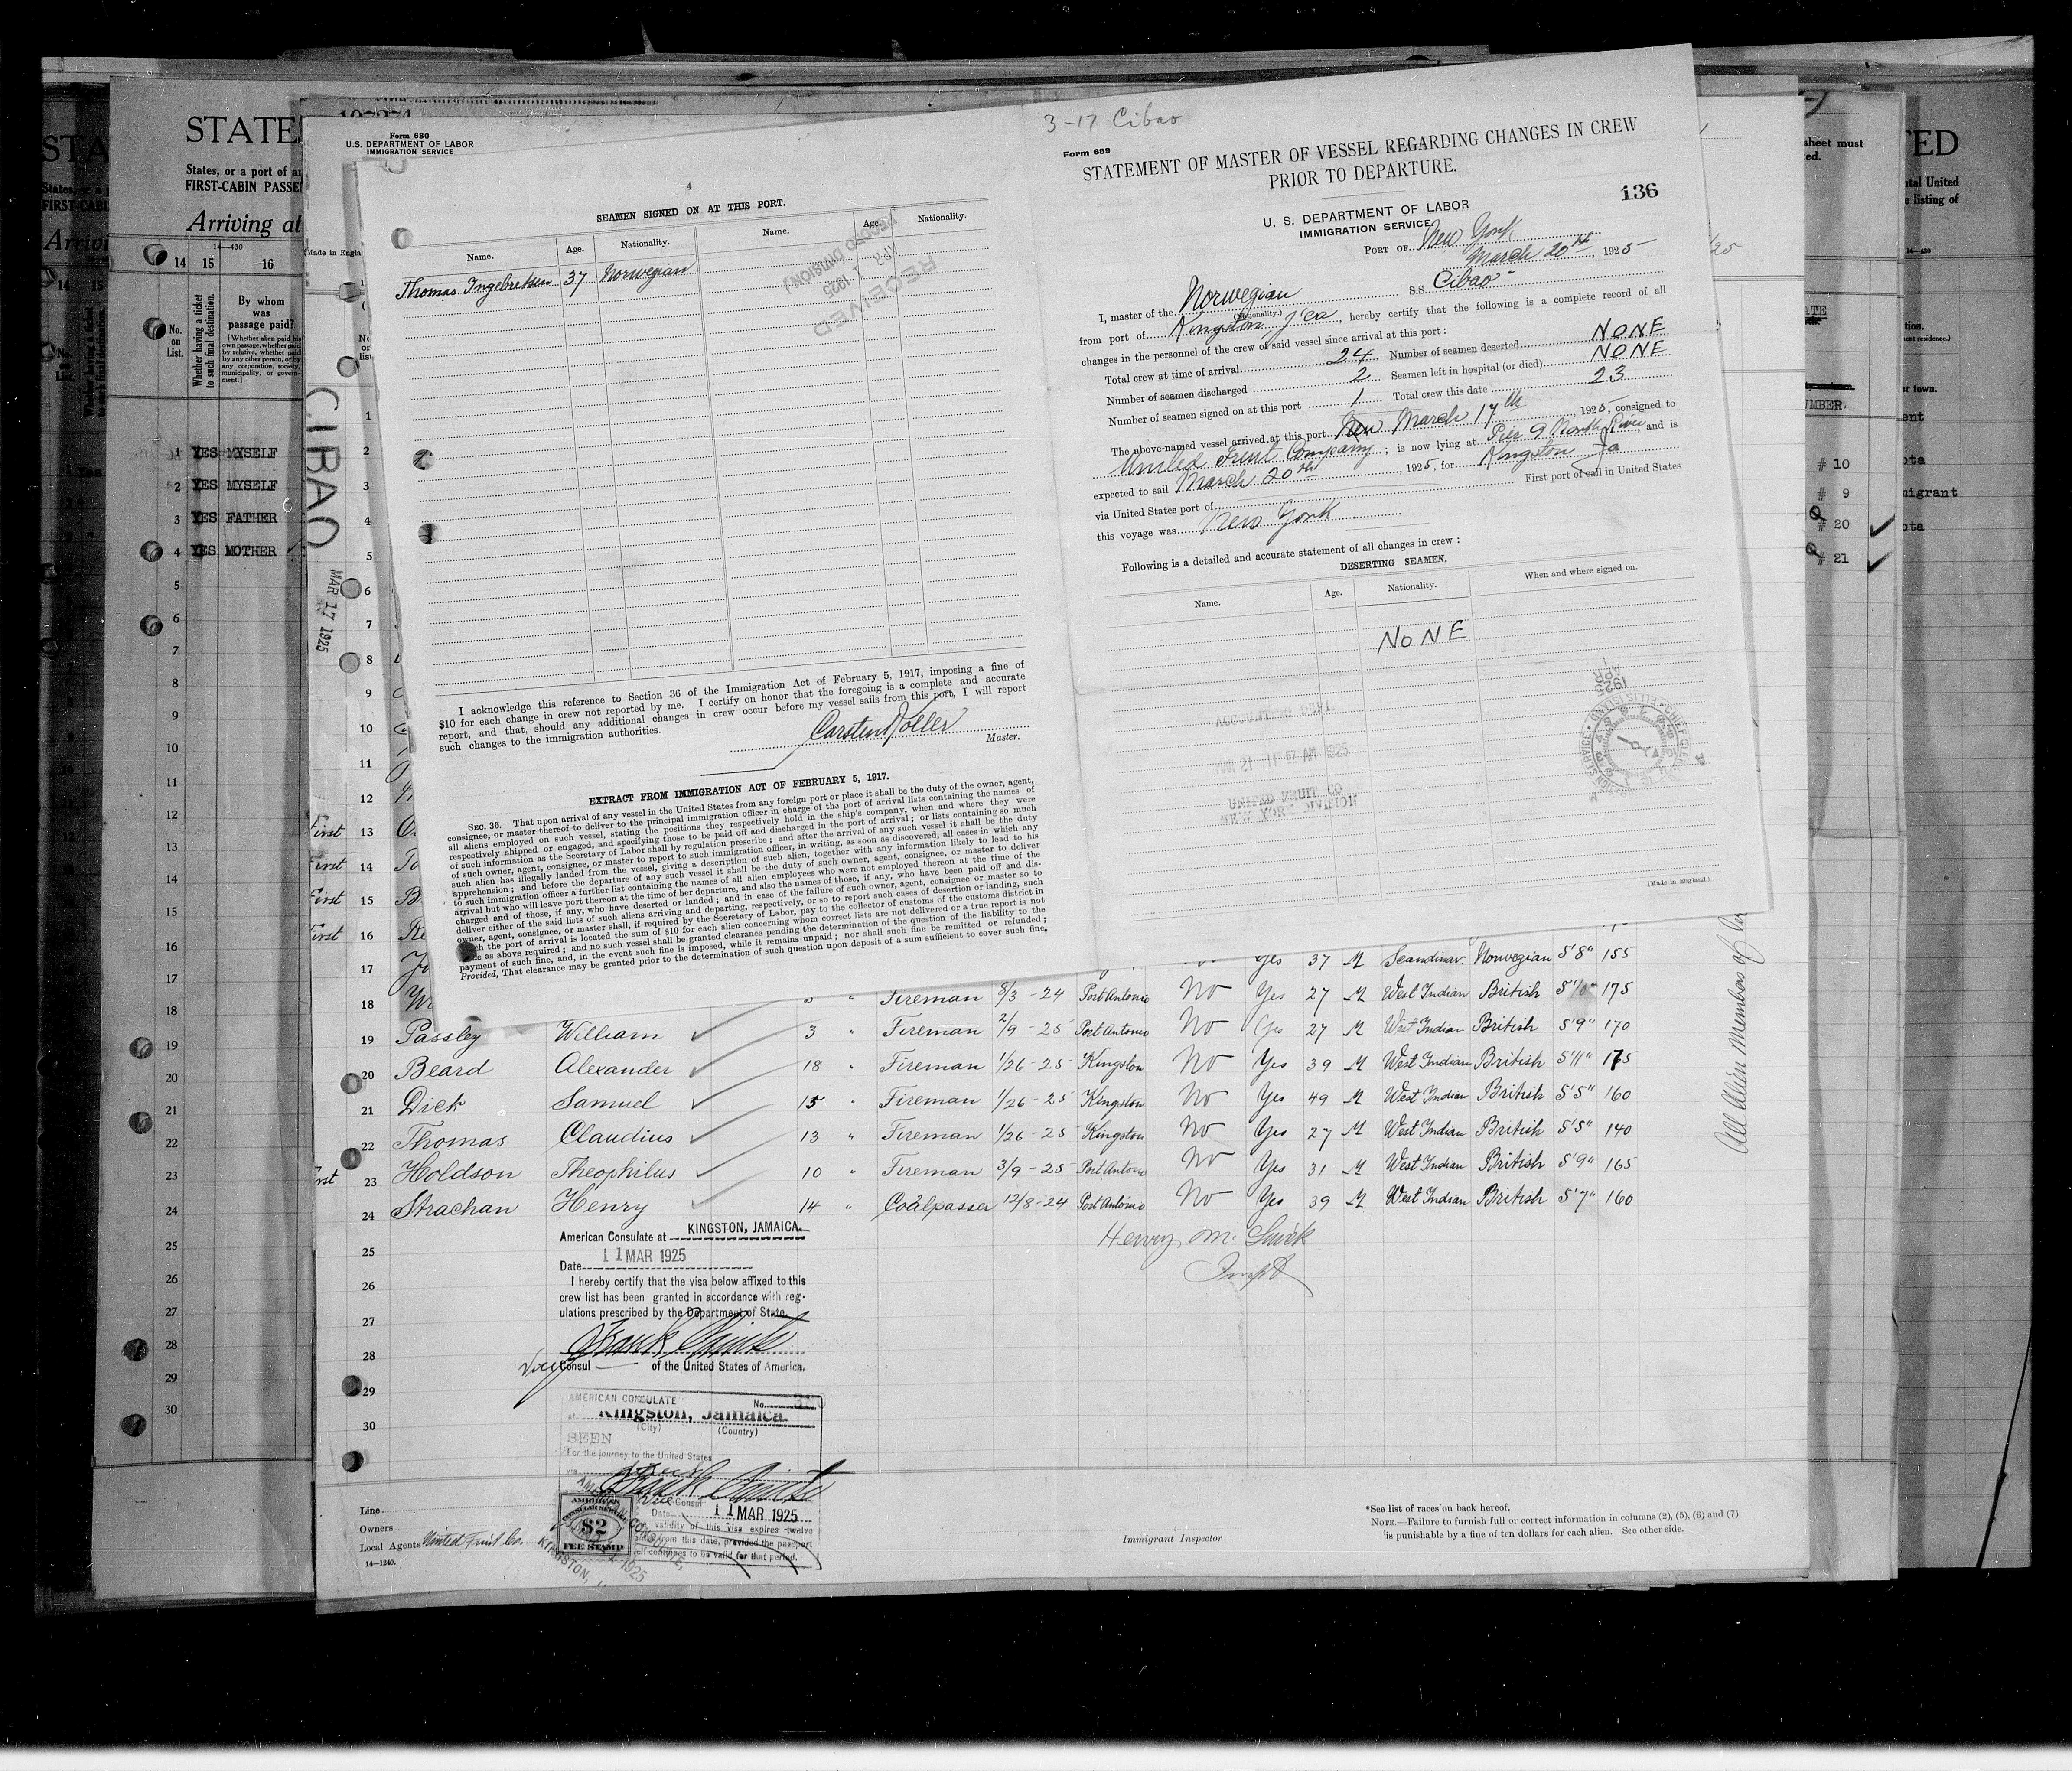 3-17 Cibao
Form 689
STATEMENT OF MASTER OF VESSEL REGARDING CHANGES IN CREW
PRIOR TO DEPARTURE.
136
U. S. DEPARTMENT OF LABOR
IMMIGRATION SERVICE
PORT OF New York
March 20th, 1925
I, master of the Norwegian S.S. Cibao
(Nationality.)
from port of Kingston, J'ca, hereby certify that the following is a complete record of all
changes in the personnel of the crew of said vessel since arrival at this port:
Total crew at time of arrival 24 Number of seamen deserted NONE
Number of seamen discharged 2 Seamen left in hospital (or died) NONE
Number of seamen signed on at this port 1 Total crew this date 23
The above-named vessel arrived at this port March 17th, 1925, consigned to
United Fruit Company; is now lying at Pier 9 North River and is
expected to sail March 20th, 1925, for Kingston Ja
via United States port of First port of call in United States
this voyage was New York
Following is a detailed and accurate statement of all changes in crew:
DESERTING SEAMEN.
Name. Age. Nationality. When and where signed on.
NONE
ACCOUNTING DEPT.
MAR 21 11 57 AM 1925
UNITED FRUIT CO
NEW YORK DIVISION
(Made in England.)
4
SEAMEN SIGNED ON AT THIS PORT.
Name. Age. Nationality. Name. Age. Nationality.
Thomas Ingebretsen 37 Norwegian
RECEIVED
APR 1 1925
RECORD DIVISION
I acknowledge this reference to Section 36 of the Immigration Act of February 5, 1917, imposing a fine of
$10 for each change in crew not reported by me. I certify on honor that the foregoing is a complete and accurate
report, and that, should any additional changes in crew occur before my vessel sails from this port, I will report
such changes to the immigration authorities.
Carsten Roller
Master.
EXTRACT FROM IMMIGRATION ACT OF FEBRUARY 5, 1917.
SEC. 36. That upon arrival of any vessel in the United States from any foreign port or place it shall be the duty of the owner, agent,
consignee, or master thereof to deliver to the principal immigration officer in charge of the port of arrival lists containing the names of
all aliens employed on such vessel, stating the positions they respectively hold in the ship's company, when and where they were
respectively shipped or engaged, and specifying those to be paid off and discharged in the port of arrival; or lists containing so much
of such information as the Secretary of Labor shall by regulation prescribe; and after the arrival of any such vessel it shall be the duty
of such owner, agent, consignee, or master to report to such immigration officer, in writing, as soon as discovered, all cases in which any
such alien has illegally landed from the vessel, giving a description of such alien, together with any information likely to lead to his
apprehension; and before the departure of any such vessel it shall be the duty of such owner, agent, consignee, or master to deliver
to such immigration officer a further list containing the names of all alien employees who were not employed thereon at the time of the
arrival but who will leave port thereon at the time of her departure, and also the names of those, if any, who have been paid off and dis-
charged and of those, if any, who have deserted or landed; and in case of the failure of such owner, agent, consignee or master so to
deliver either of the said lists of such aliens arriving and departing, respectively, or so to report such cases of desertion or landing, such
owner, agent, consignee, or master shall, if required by the Secretary of Labor, pay to the collector of customs of the customs district in
the port of arrival is located the sum of $10 for each alien concerning whom correct lists are not delivered or a true report is not
as above required; and no such vessel shall be granted clearance pending the determination of the question of the liability to the
payment of such fine, and, in the event such fine is imposed, while it remains unpaid; nor shall such fine be remitted or refunded;
Provided, That clearance may be granted prior to the determination of such question upon deposit of a sum sufficient to cover such fine.
Form 680
U.S. DEPARTMENT OF LABOR
IMMIGRATION SERVICE
Made in Engla
CIBAO
MAR 17 1925
First 13
First 14
First 15
First 16
17 Yes 37 M Scandinav. Norwegian 5'8" 155
18 Fireman 8/3-24 Port Antonio No Yes 27 M West Indian British 175
19 Passley William 3 " Fireman 2/9-25 Port Antonio No Yes 27 M West Indian British 5'9" 170
20 Beard Alexander 18 " Fireman 1/26-25 Kingston No Yes 39 M West Indian British 5'11" 175
21 Dick Samuel 15 " Fireman 1/26-25 Kingston No Yes 49 M West Indian British 5'5" 160
22 Thomas Claudius 13 " Fireman 1/26-25 Kingston No Yes 27 M West Indian British 5'5" 140
23 Holdson Theophilus 10 " Fireman 3/9-25 Port Antonio No Yes 31 M West Indian British 5'9" 165
24 Strachan Henry 14 " Coalpasser 12/8-24 Port Antonio No Yes 39 M West Indian British 5'7" 160
25
26
27
28
29
30
All Alien Members of
American Consulate at KINGSTON, JAMAICA.
Date 11 MAR 1925
I hereby certify that the visa below affixed to this
crew list has been granted in accordance with reg-
ulations prescribed by the Department of State.
Vice Consul of the United States of America.
AMERICAN CONSULATE No.
at Kingston, Jamaica.
(City) (Country)
SEEN
For the journey to the United States
via
Vice Consul
Date 11 MAR 1925
validity of this visa expires twelve
from this date, provided the passport
continues to be valid for that period.
AMERICAN
CONSULAR SERVICE
$2
FEE STAMP
Line
Owners
Local Agents United Fruit Co.
14-1240.
Immigrant Inspector
*See list of races on back hereof.
NOTE.—Failure to furnish full or correct information in columns (2), (5), (6) and (7)
is punishable by a fine of ten dollars for each alien. See other side.
STATES
States, or a port of a
FIRST-CABIN PASSE
Arriving at
14-430
14 15 16
No. on List.
Whether having a ticket to such final destination.
By whom was passage paid?
[Whether alien paid his own passage, whether paid by relative, whether paid by any other person, or by any corporation, society, municipality, or government.]
1 YES MYSELF
2 YES MYSELF
3 YES FATHER
4 YES MOTHER
5
6
7
8
9
10
11
12
13
14
15
16
17
18
19
20
21
22
23
24
25
26
27
28
29
30
# 10
# 9
# 20
# 21